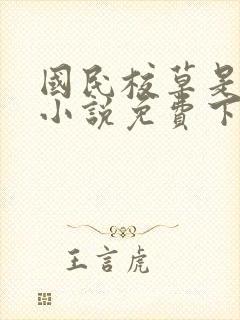 國民校草是
小說免費下
王言虎